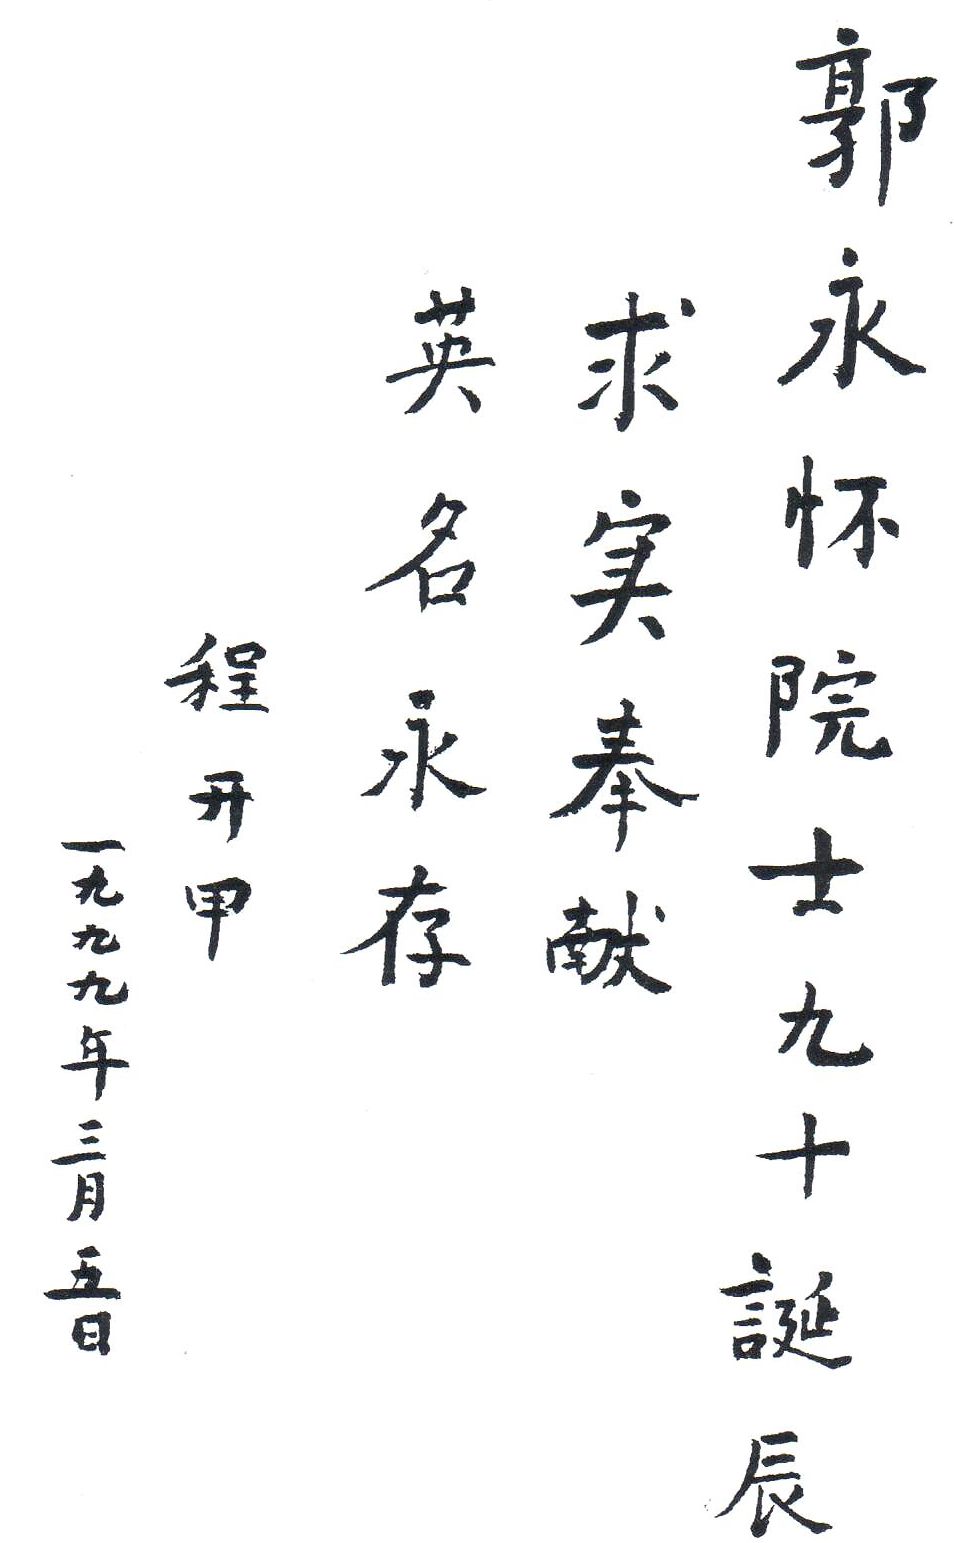 郭永怀院士九十誕辰
求实奉献
英名永存
程开甲
一九九九年三月五日